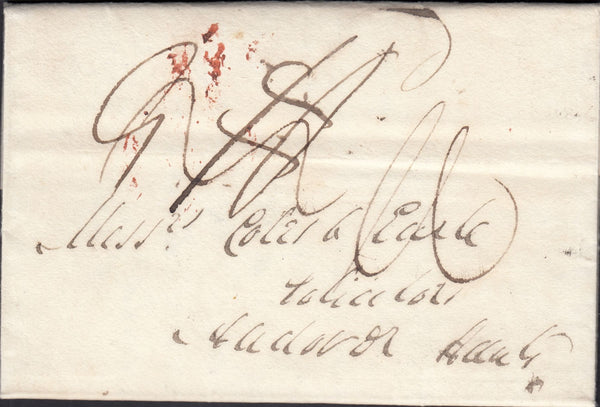 Messrs. Coles & Earle
Solicitors
Andover Hants